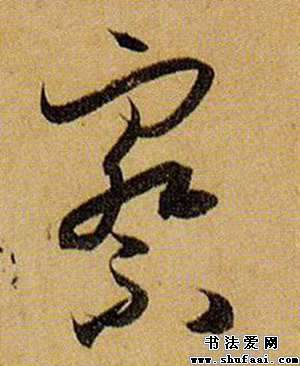 察
书法爱网
www.shufaai.com